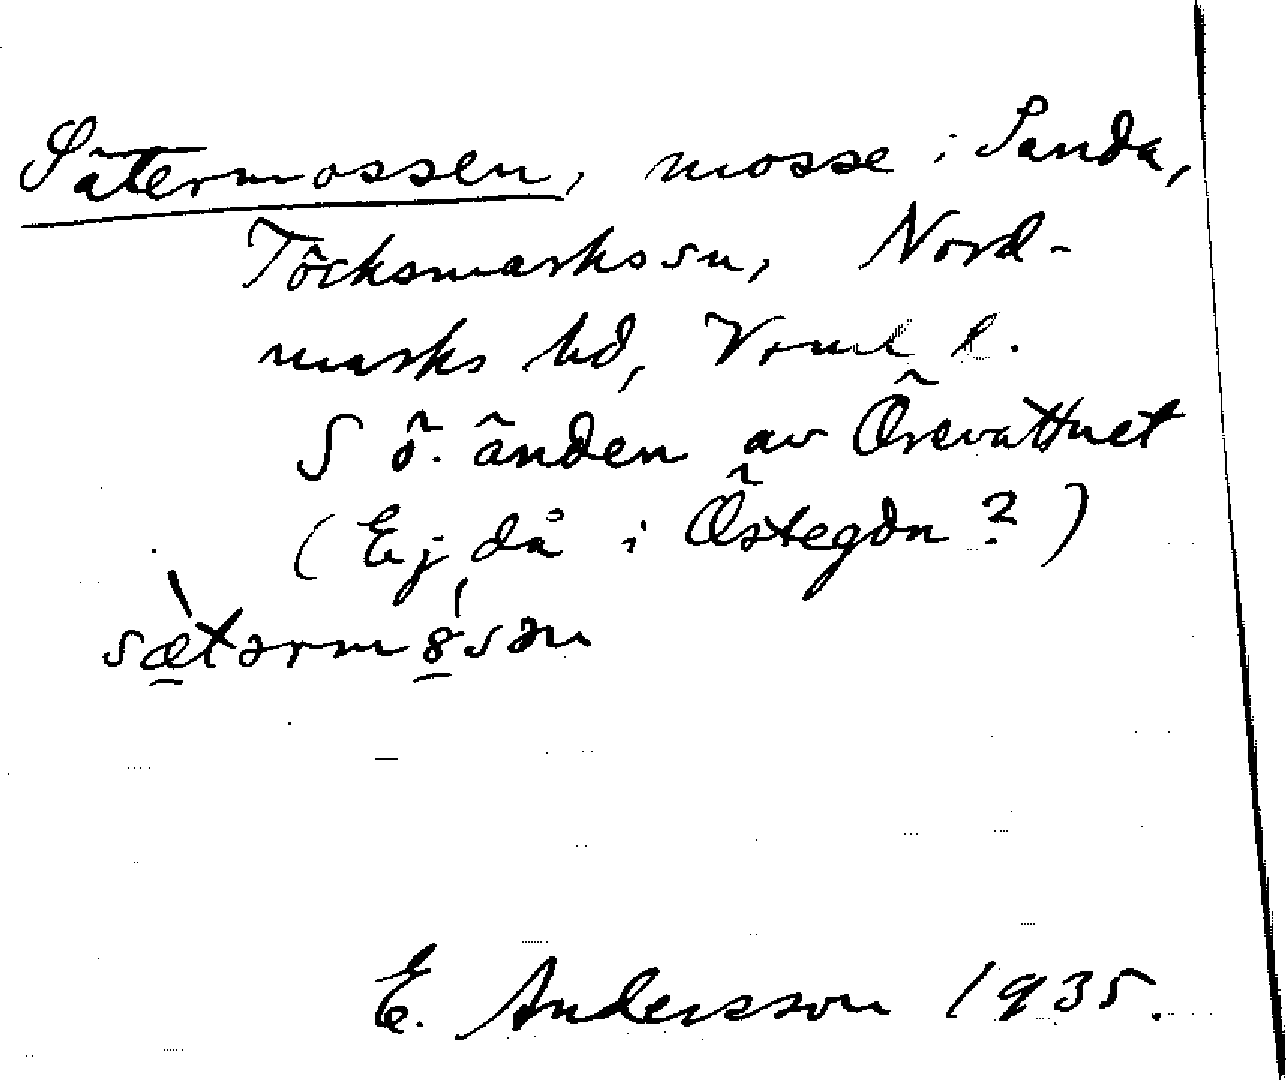 Sätermossen, mosse i Sanda,
Töcksmarks sn, Nord-
marks hd, Vrml l.
S ö. änden av Örevattnet
(Ej då i Östegdn?)
sætərm8sən
E. Andersson 1935.